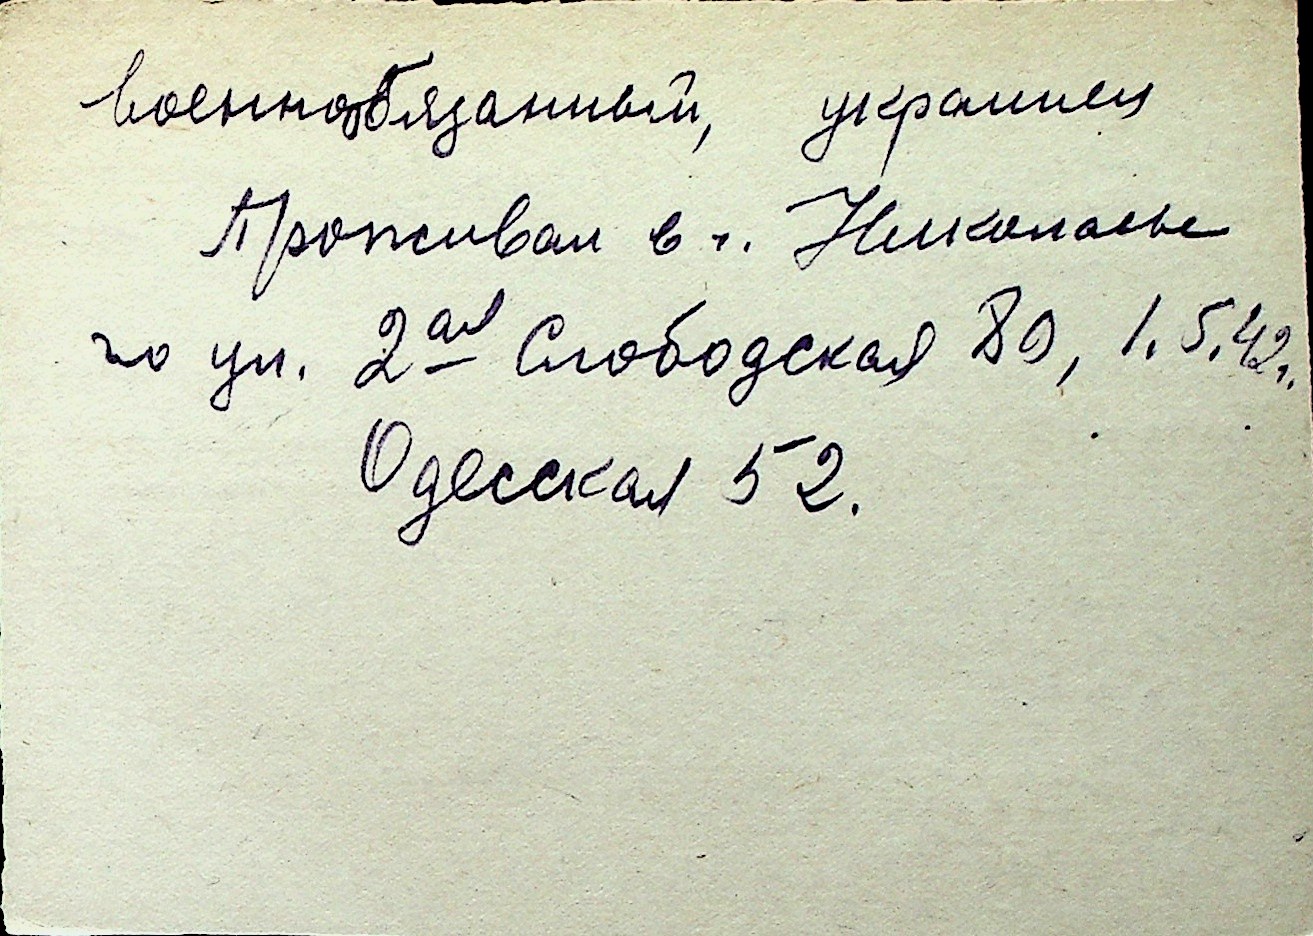 военнообязанный, украинец
Проживал в г. Николаеве
по ул. 2ая Слободская 89, 1.5.42г.
Одесская 52.